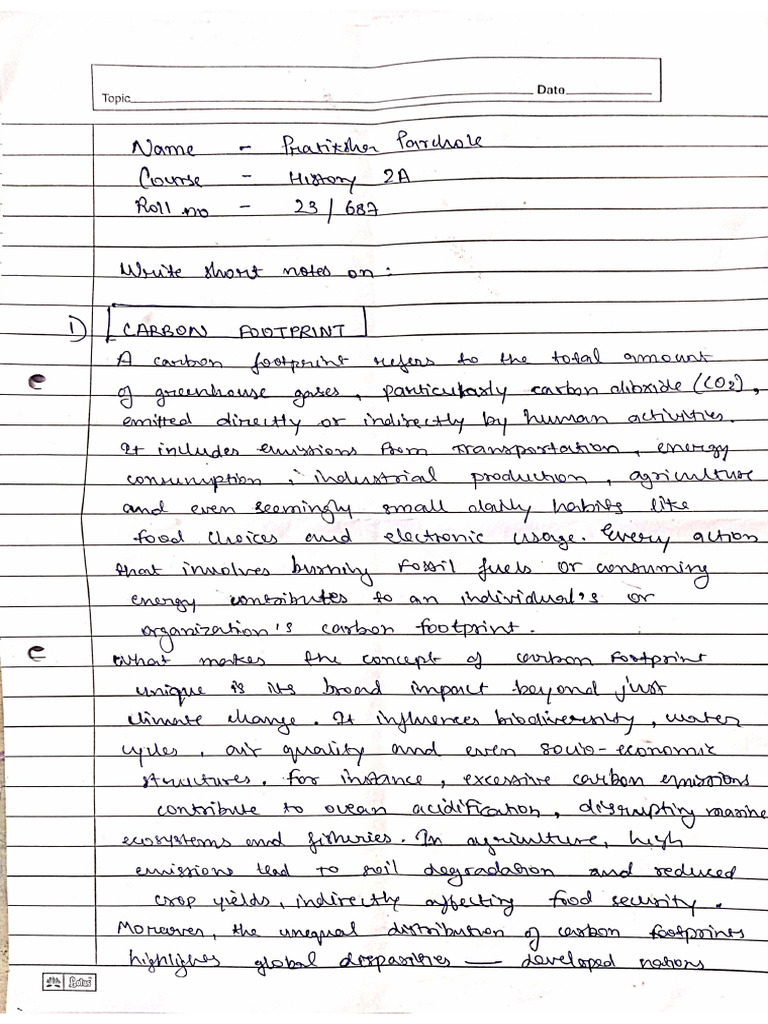 Topic
Date
Name -
Course - History 2A
Roll no - 23/687
Write short notes on :
1) CARBON FOOTPRINT
A carbon footprint refers to the total amount
of greenhouse gases, particularly carbon dioxide (CO2),
emitted directly or indirectly by human activities.
It includes emissions from transportation, energy
consumption, industrial production, agriculture
and even seemingly small daily habits like
food choices and electronic usage. Every action
that involves burning fossil fuels or consuming
energy contributes to an individual's or
organization's carbon footprint.
What makes the concept of carbon footprint
unique is its broad impact beyond just
climate change. It influences biodiversity, water
cycles, air quality and even socio-economic
structures. For instance, excessive carbon emissions
contribute to ocean acidification, disrupting marine
ecosystems and fisheries. In agriculture, high
emissions lead to soil degradation and reduced
crop yields, indirectly affecting food security.
Moreover, the unequal distribution of carbon footprints
highlights global disparities — developed nations
Lotus